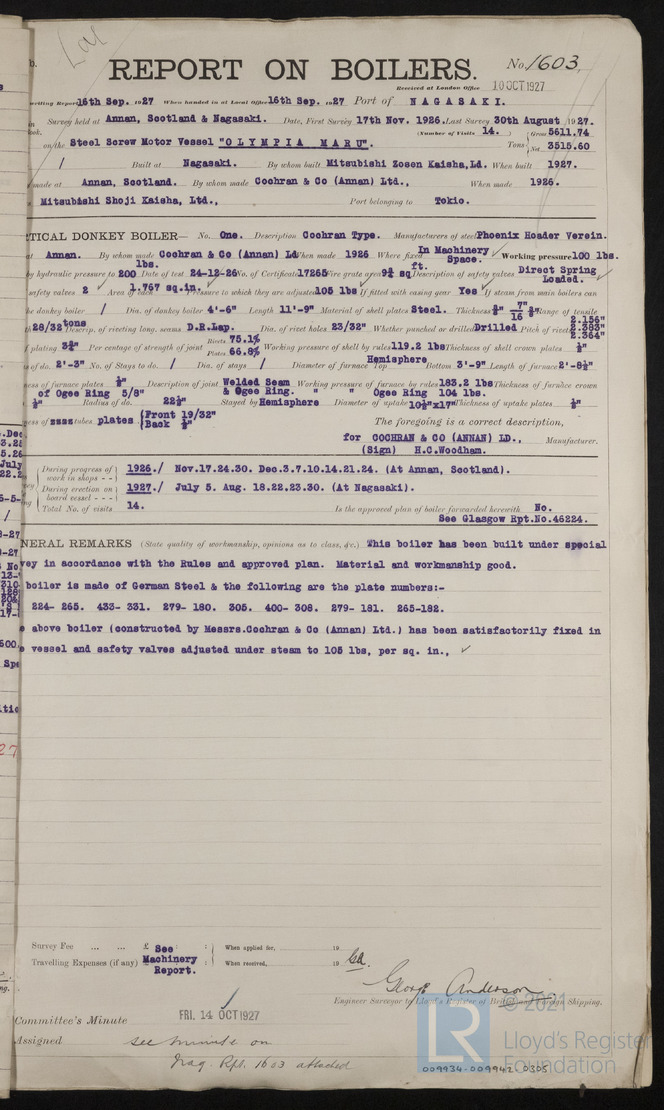 REPORT ON BOILERS.
No. 1603.
Received at London Office 10 OCT 1927
writing Report 16th Sep. 1927 When handed in at Local Office 16th Sep. 1927 Port of NAGASAKI.
Survey held at Annan, Scotland & Nagasaki. Date, First Survey 17th Nov. 1926. Last Survey 30th August 1927.
(Number of Visits 14.
on the Steel Screw Motor Vessel "OLYMPIA MARU". Tons Gross 5611.74 Net 3515.60
/ Built at Nagasaki. By whom built Mitsubishi Zosen Kaisha, Ld. When built 1927.
made at Annan, Scotland. By whom made Cochran & Co (Annan) Ltd., When made 1926.
Mitsubishi Shoji Kaisha, Ltd., Port belonging to Tokio.
TICAL DONKEY BOILER— No. One. Description Cochran Type. Manufacturers of steel Phoenix Hoader Verein.
at Annan. By whom made Cochran & Co (Annan) Ld When made 1926 Where fixed In Machinery Space. Working pressure 100 lbs.
by hydraulic pressure to 200 lbs. Date of test 24-12-26 No. of Certificate 17265 Fire grate area 9¾ sq ft. Description of safety valves Direct Spring Loaded.
safety valves 2 Area of each 1.767 sq.in. Pressure to which they are adjusted 105 lbs If fitted with easing gear Yes If steam from main boilers can
the donkey boiler / Dia. of donkey boiler 4'-6" Length 11'-9" Material of shell plates Steel. Thickness 7/16 Range of tensile
th 28/32 tons Descrip. of riveting long. seams D.R.Lap. Dia. of rivet holes 23/32" Whether punched or drilled Drilled Pitch of rivets 2.156" 2.383" 2.364"
f plating 3¾" Per centage of strength of joint Rivets 75.1% Plates 66.8% Working pressure of shell by rules 119.2 lbs Thickness of shell crown plates ½"
s of do. 2'-3" No. of Stays to do. / Dia. of stays / Diameter of furnace Top Hemisphere Bottom 3'-9" Length of furnace 2'-8½"
ness of furnace plates ½" Description of joint Welded Seam & Ogee Ring. Working pressure of furnace by rules 183.2 lbs Thickness of furnace crown
of Ogee Ring 5/8" " " Ogee Ring 104 lbs.
½" Radius of do. 22½" Stayed by Hemisphere Diameter of uptake 10½"x17" Thickness of uptake plates ½"
ness of tubes plates (Front 19/32" (Back ½" The foregoing is a correct description,
for COCHRAN & CO (ANNAN) LD., Manufacturer.
(Sign) H.C.Woodham.
During progress of work in shops - - 1926./ Nov.17.24.30. Dec.3.7.10.14.21.24. (At Annan, Scotland).
During erection on board vessel - - - 1927./ July 5. Aug. 18.22.23.30. (At Nagasaki).
Total No. of visits 14. Is the approved plan of boiler forwarded herewith No.
See Glasgow Rpt.No.46224.
NERAL REMARKS (State quality of workmanship, opinions as to class, &c.) This boiler has been built under special
vey in accordance with the Rules and approved plan. Material and workmanship good.
boiler is made of German Steel & the following are the plate numbers:-
224- 265. 433- 331. 279- 180. 305. 400- 308. 279- 181. 265-182.
e above boiler (constructed by Messrs.Cochran & Co (Annan) Ltd.) has been satisfactorily fixed in
e vessel and safety valves adjusted under steam to 105 lbs, per sq. in.,
Survey Fee ... ... £ See Machinery Report. When applied for, 19
Travelling Expenses (if any) £ When received, 19
George Anderson
Engineer Surveyor to Lloyd's Register of British and Foreign Shipping.
Committee's Minute FRI. 14 OCT 1927
Assigned see minute on
Nag. Rpt. 1603 attached
© 2021
LR Lloyd's Register Foundation
009934-009942-0305